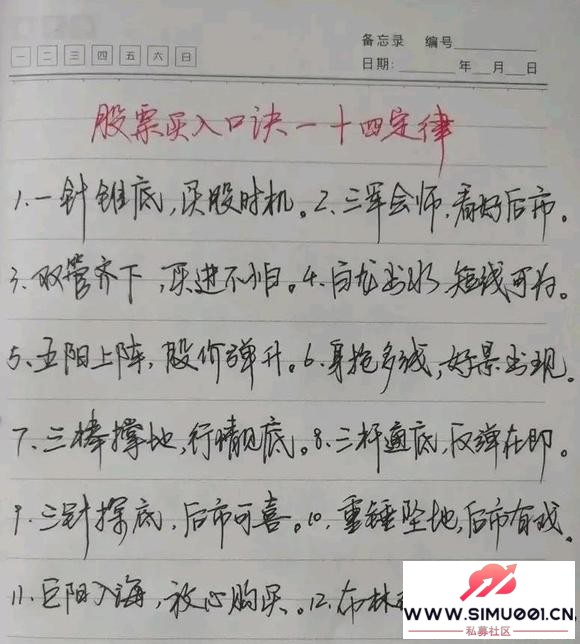 备忘录 编号
一 二 三 四 五 六 日
日期: 年 月 日
股票买入口诀一十四定律
1.一针锥底,买股时机。2、三军会师,看好后市。
3、双管齐下,买进不怕。4、白龙出水,短线可为。
5、五阳上阵,股价弹升。6、身抱多线,好景出现。
7、三棒撑地,行情见底。8、三杆通底,反弹在即。
9、三针探底,后市可喜。10、重锤坠地,后市有戏。
11、巨阳入海,放心购买。12、布林
WWW.SIMU001.CN
私募社区